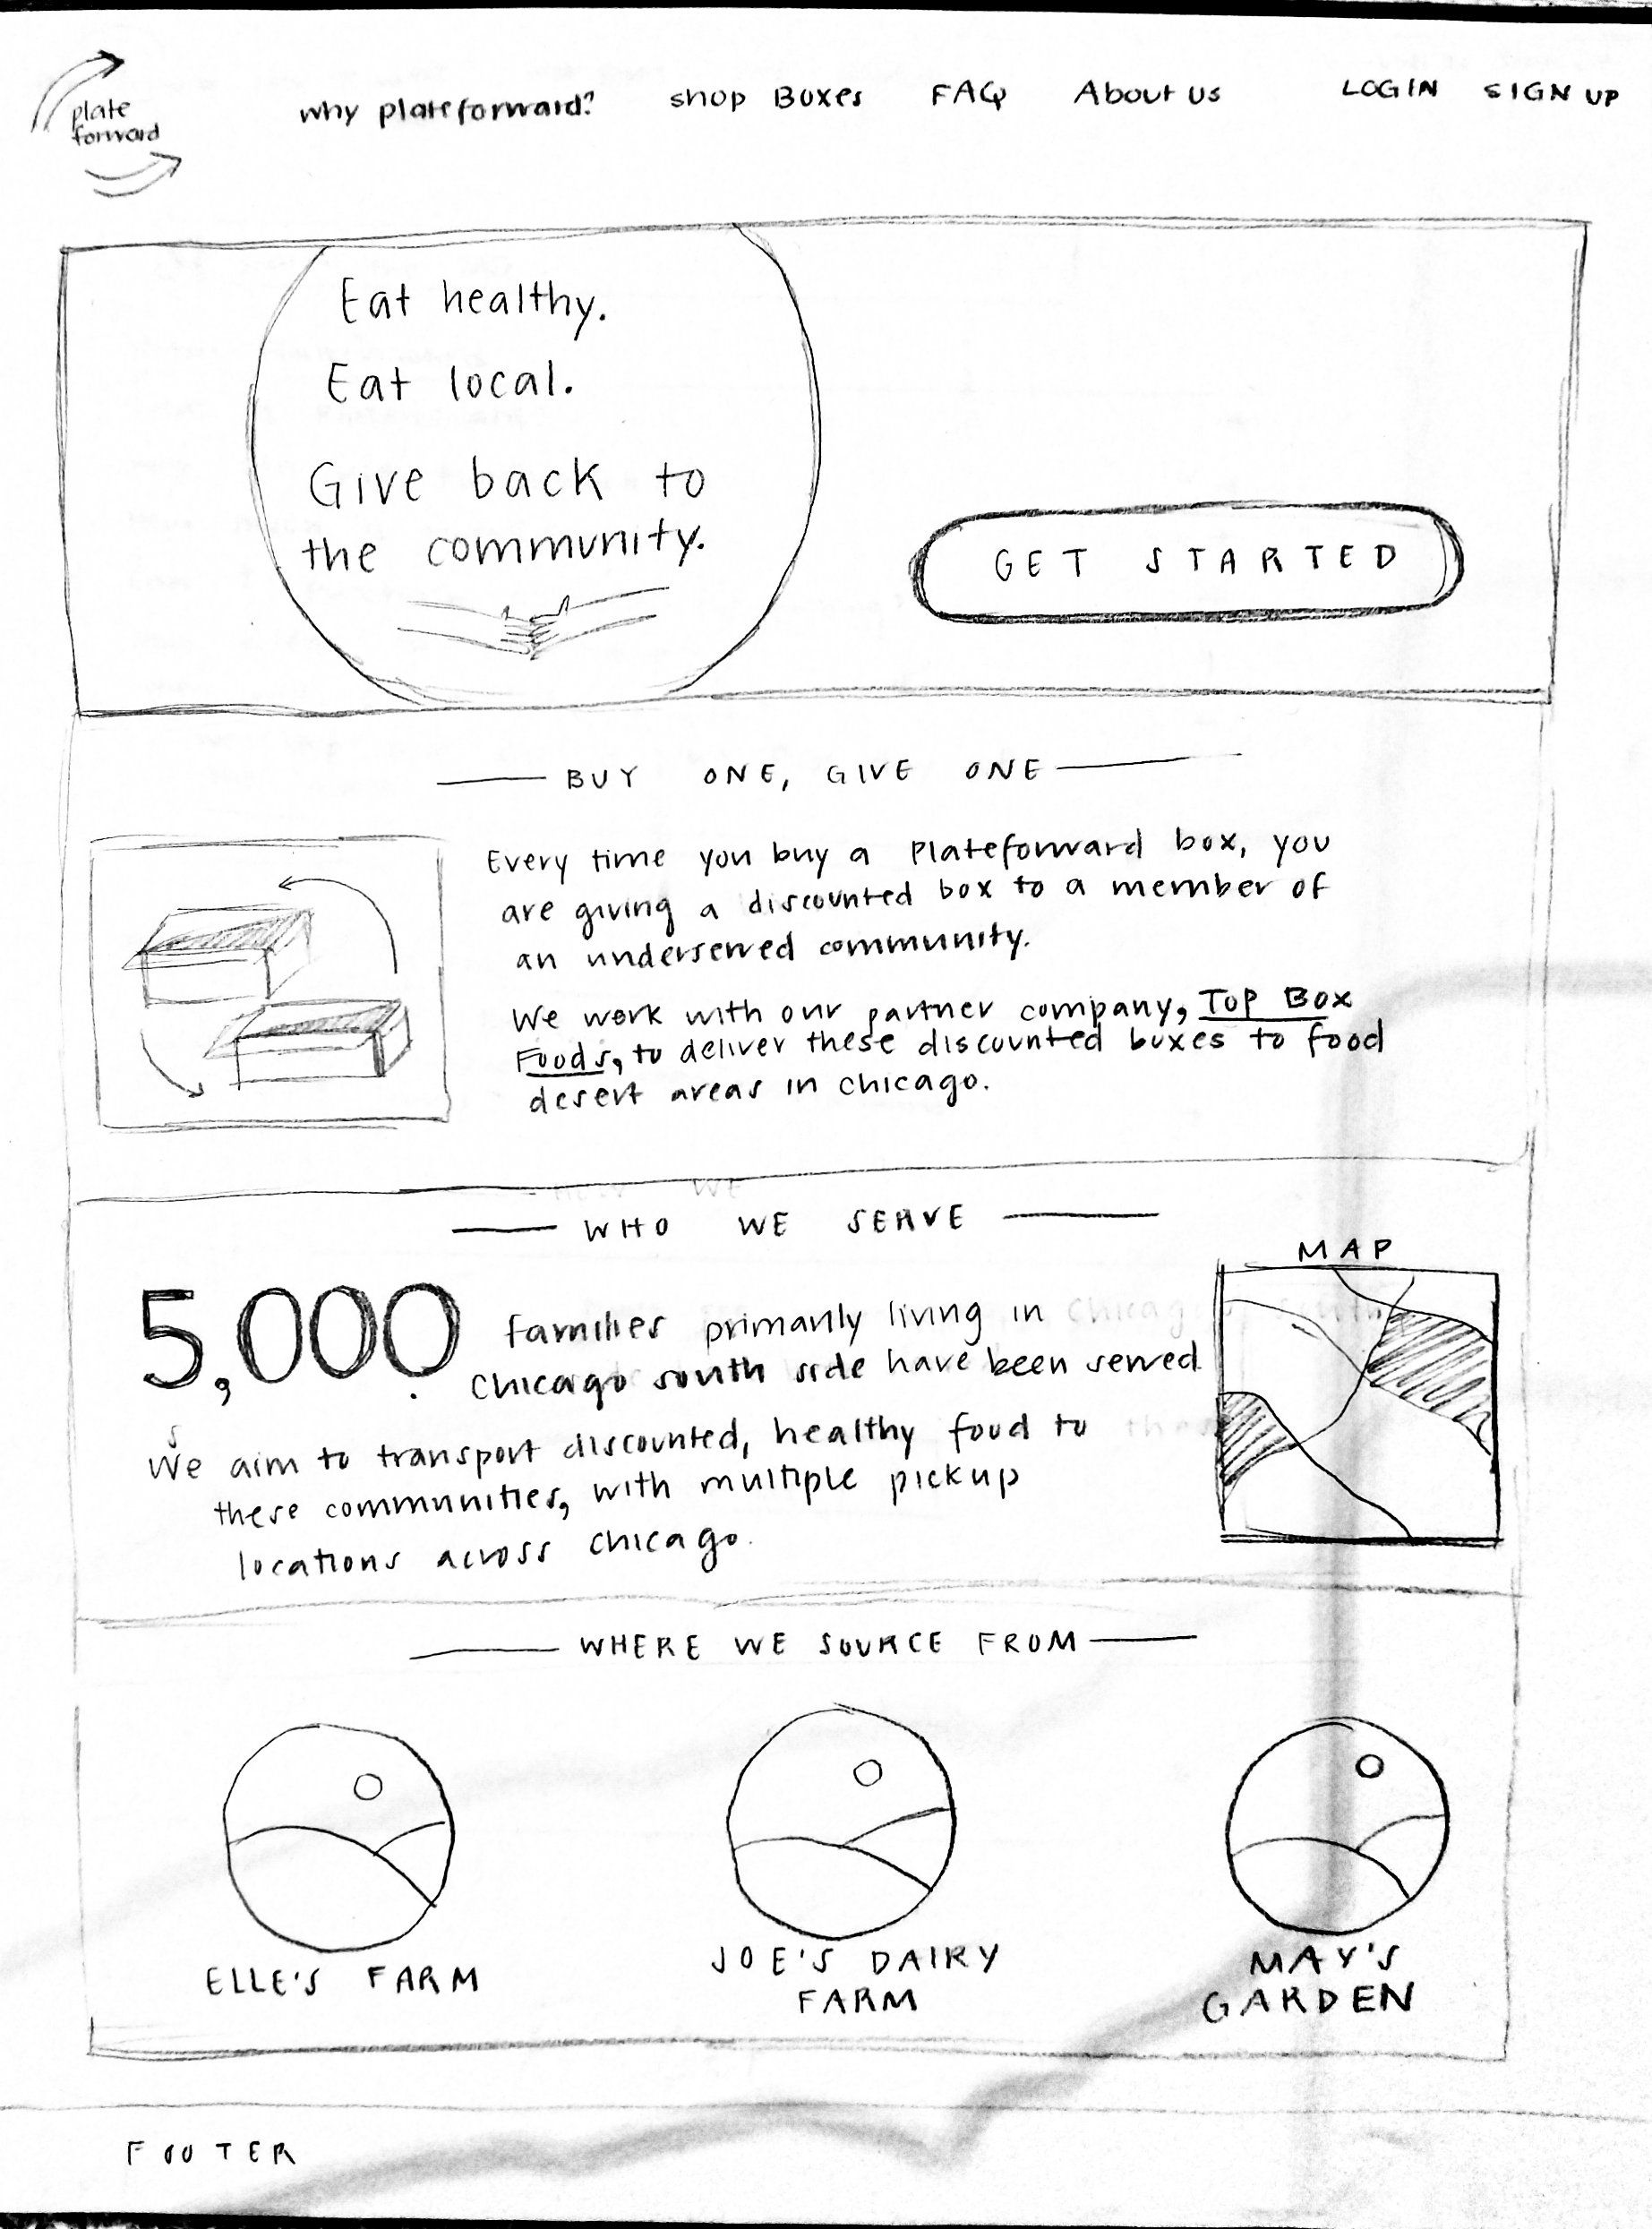 plate
forward
why plateforward?
shop Boxes
FAQ
About us
LOGIN
SIGN UP
Eat healthy.
Eat local.
Give back to
the community.
GET STARTED
BUY ONE, GIVE ONE
Every time you buy a Plateforward box, you
are giving a discounted box to a member of
an underserved community.
We work with our partner company, Top Box
Foods, to deliver these discounted boxes to food
desert areas in chicago.
WHO WE SERVE
MAP
5,000 families primarily living in
Chicago south side have been served
We aim to transport discounted, healthy food to
these communities, with multiple pickup
locations across chicago.
WHERE WE SOURCE FROM
ELLE'S FARM
JOE'S DAIRY
FARM
MAY'S
GARDEN
FOOTER